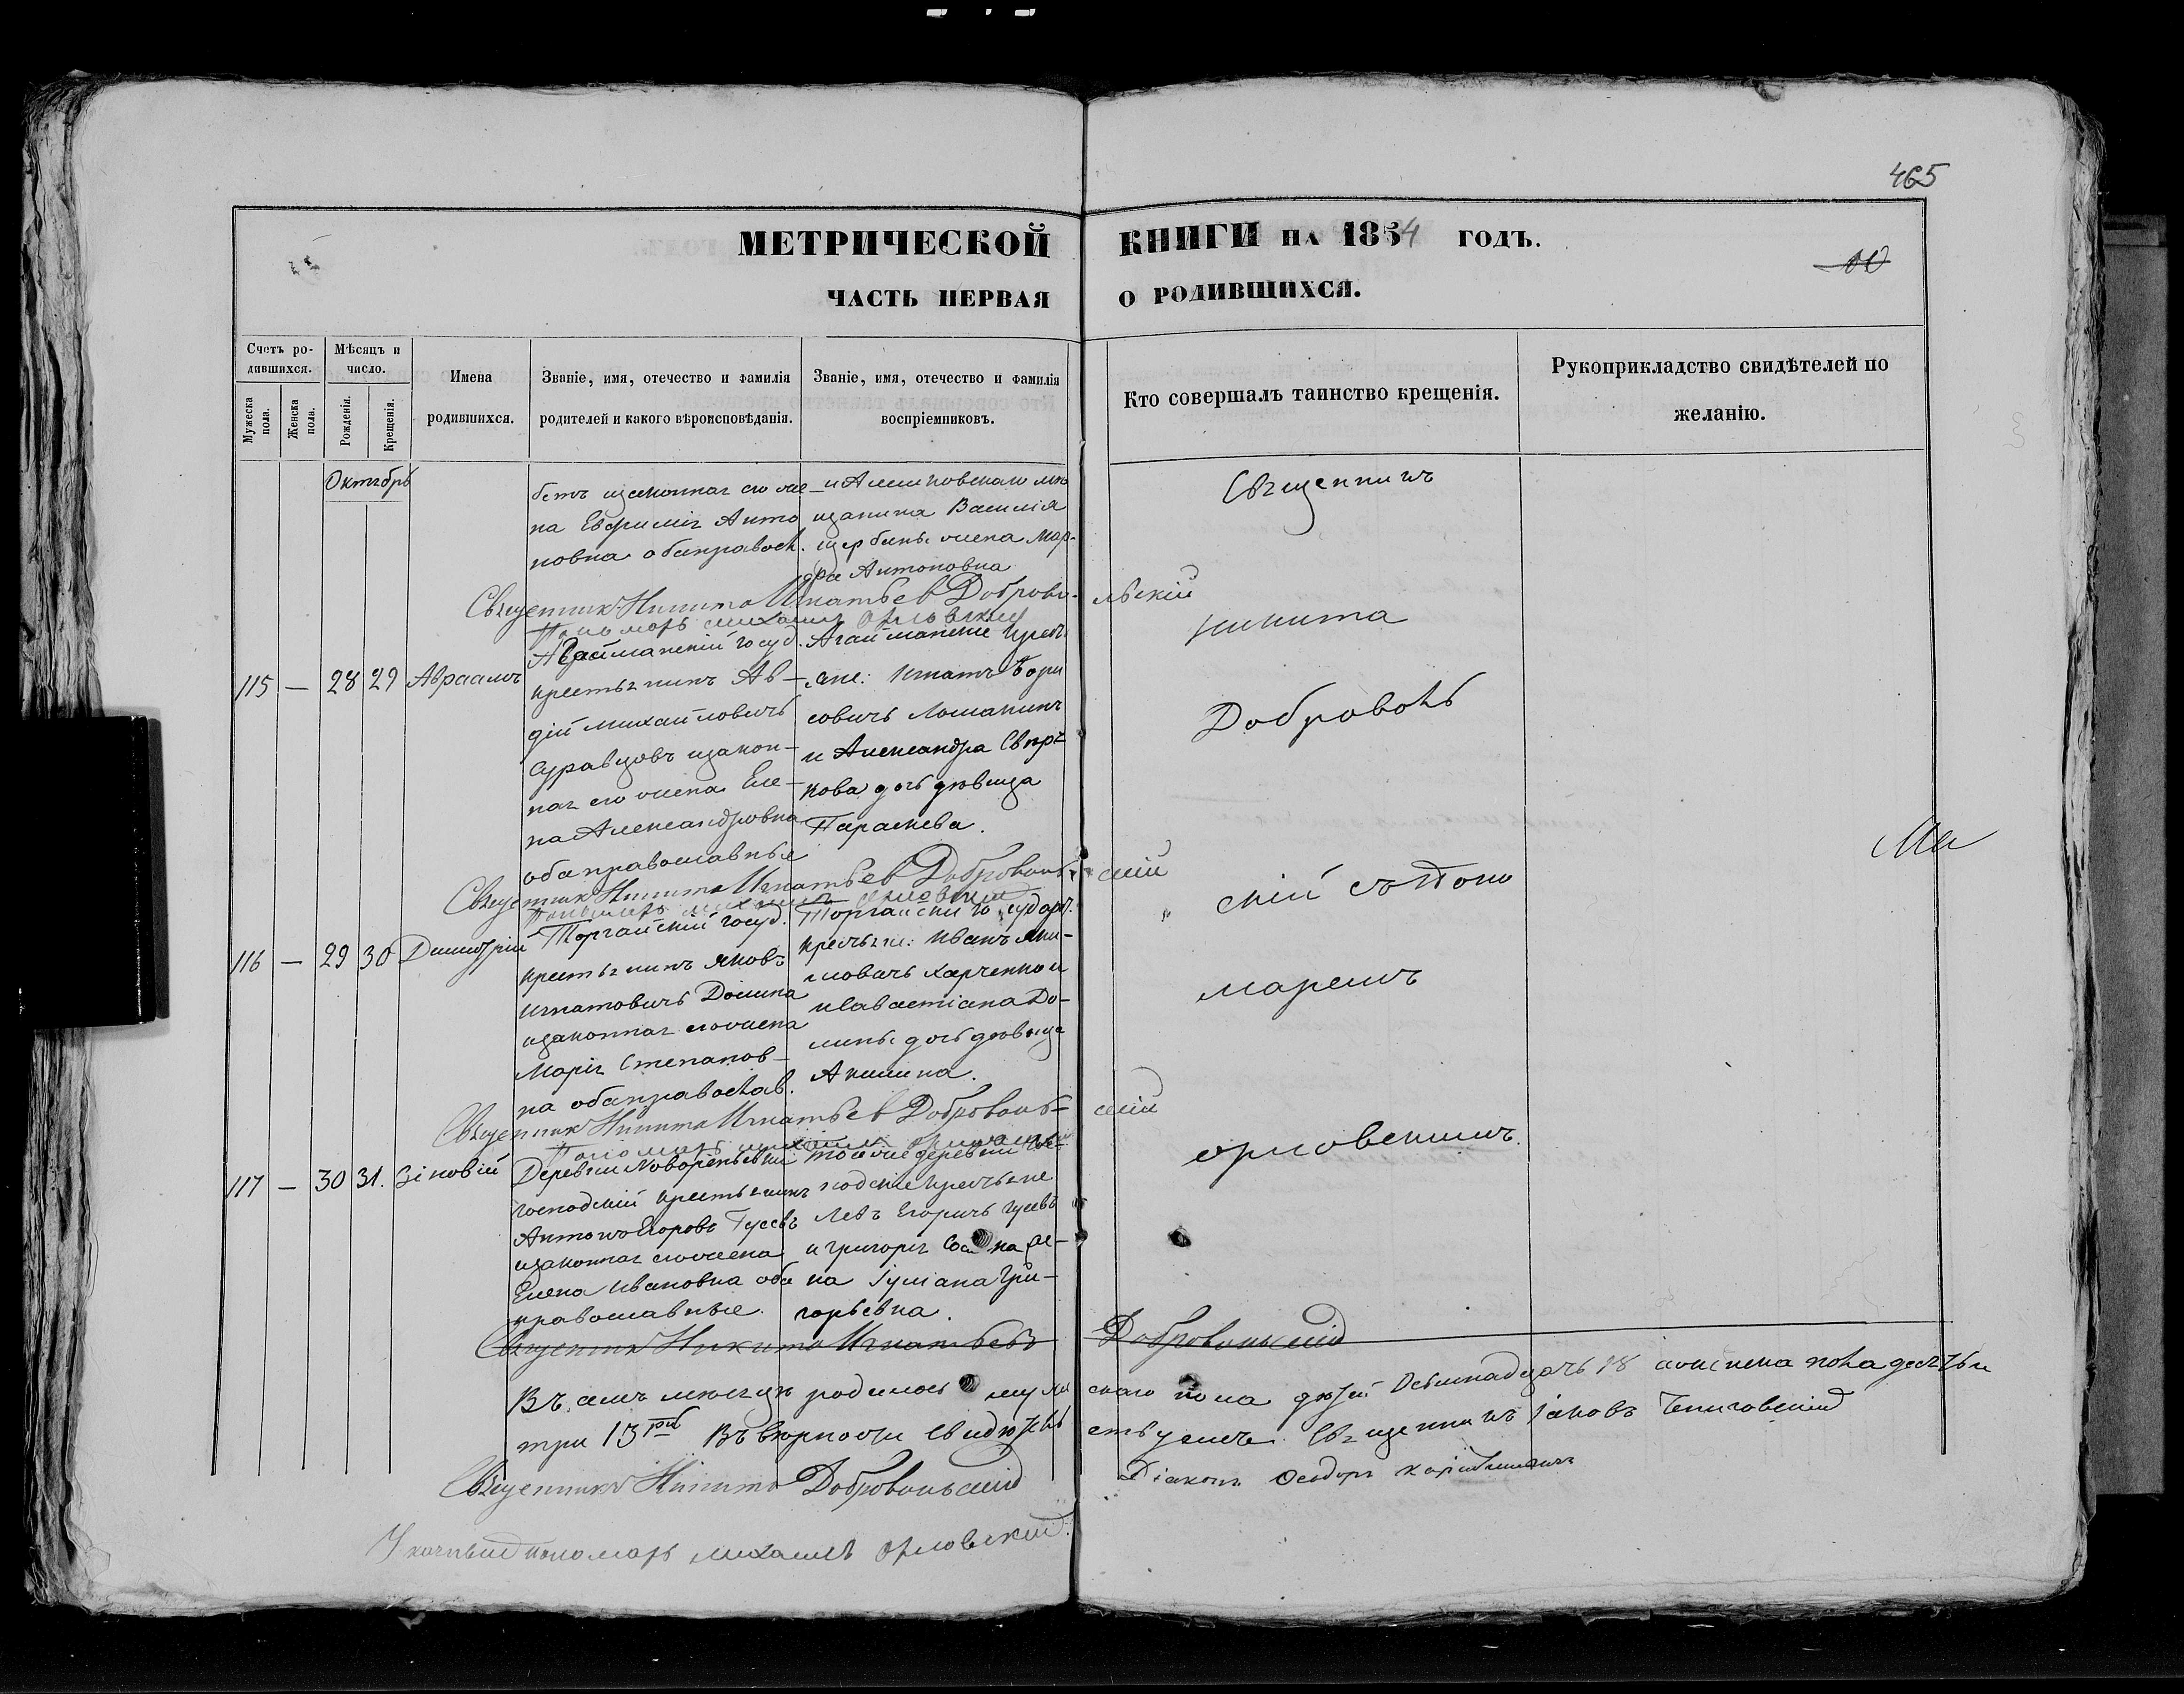 465
МЕТРИЧЕСКОЙ КНИГИ НА 1854 ГОДЪ.
ЧАСТЬ ПЕРВАЯ О РОДИВШИХСЯ.
Счетъ родившихся.
Мужеска пола.
Женска пола.
Мѣсяцъ и число.
Рожденія.
Крещенія.
Имена родившихся.
Званіе, имя, отечество и фамилія родителей и какого вѣроисповѣданія.
Званіе, имя, отечество и фамилія воспріемниковъ.
Кто совершалъ таинство крещенія.
Рукоприкладство свидѣтелей по желанію.
Октябрь
бетъ изаконная его же-
на Евфимія Анто
новна оба правосл.
щанина Василія
щербины жена Мар-
фа Антоновна
Священникъ Никита Игнатьевъ Добровольскій
Пономарь Михаилъ Орловскій
115 — 28 29 Авраамъ
Агайманскій госуд.
крестьянинъ Ав-
дій Михайловичъ
Суравцовъ изакон-
ная его жена Еле-
на Александровна
оба православные
Агайманскіе крест
яне: Игнатъ Бори
совичъ Лошакинъ
и Александра Свир
кова дочь дѣвица
Параскева.
Священникъ Никита Игнатьевъ Добровольскій
Пономарь Михаилъ Орловскій
116 — 29 30 Димитрій
Торгайскій госуд.
крестьянинъ Яковъ
Игнатовичъ Домина
изаконная его жена
Марія Степанов-
на оба православ.
Торгайскіе государ.
крестьяне: Иванъ Яки-
мовичъ Харченко и
и Савастіана До-
мины дочь дѣвица
Акилина.
Священникъ Никита Игнатьевъ Добровольскій
Пономарь Михаилъ Орловскій
117 — 30 31. Зіновій
Деревни
господскій крестьянинъ
Антонъ Егоровъ Гусевъ
изаконная его жена
Елена Ивановна оба
православные.
тойже деревни гос-
подскіе крестьяне
Левъ Егоричъ Гусевъ
и Григорія
на Гуліана Гри-
горьевна.
Священникъ Никита Игнатьевъ Добровольскій
Священникъ
Никита
Доброволь
скій съ Поно
маремъ
Орловскимъ.
Въ семъ мѣсяцѣ родилось мужскаго пола дѣтей Осьмнадцать 18 а женска пола десять и
три 13 Въ вѣрности свидѣтельствуемъ. Священникъ Іаковъ
Священникъ Никита Добровольскій
Діаконъ Ѳеодоръ
пономарь Михаилъ Орловскій.